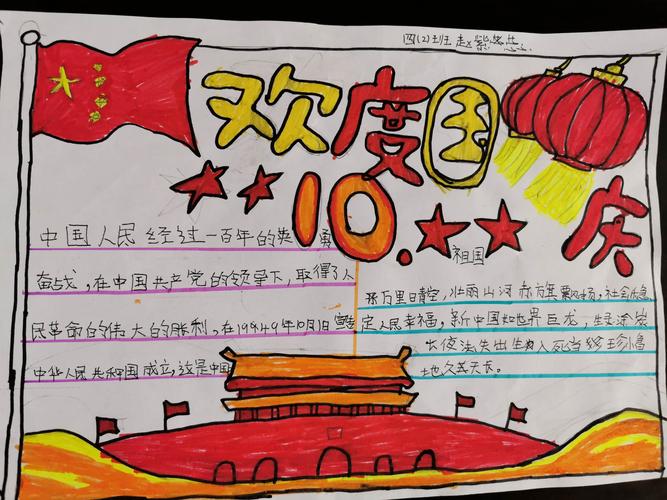 四(2)班赵紫
欢度国庆
10.
中国人民经过一百年的英勇
奋战,在中国共产党的领导下,取得了人
民革命的伟大的胜利,在1949年10月1日宣告
中华人民共和国成立,这是中国
祖国
万里日青空,壮丽山河赤旗飘扬,社会
定人民幸福,新中国如世界巨龙,
大使法失出生入死当
地久天长。